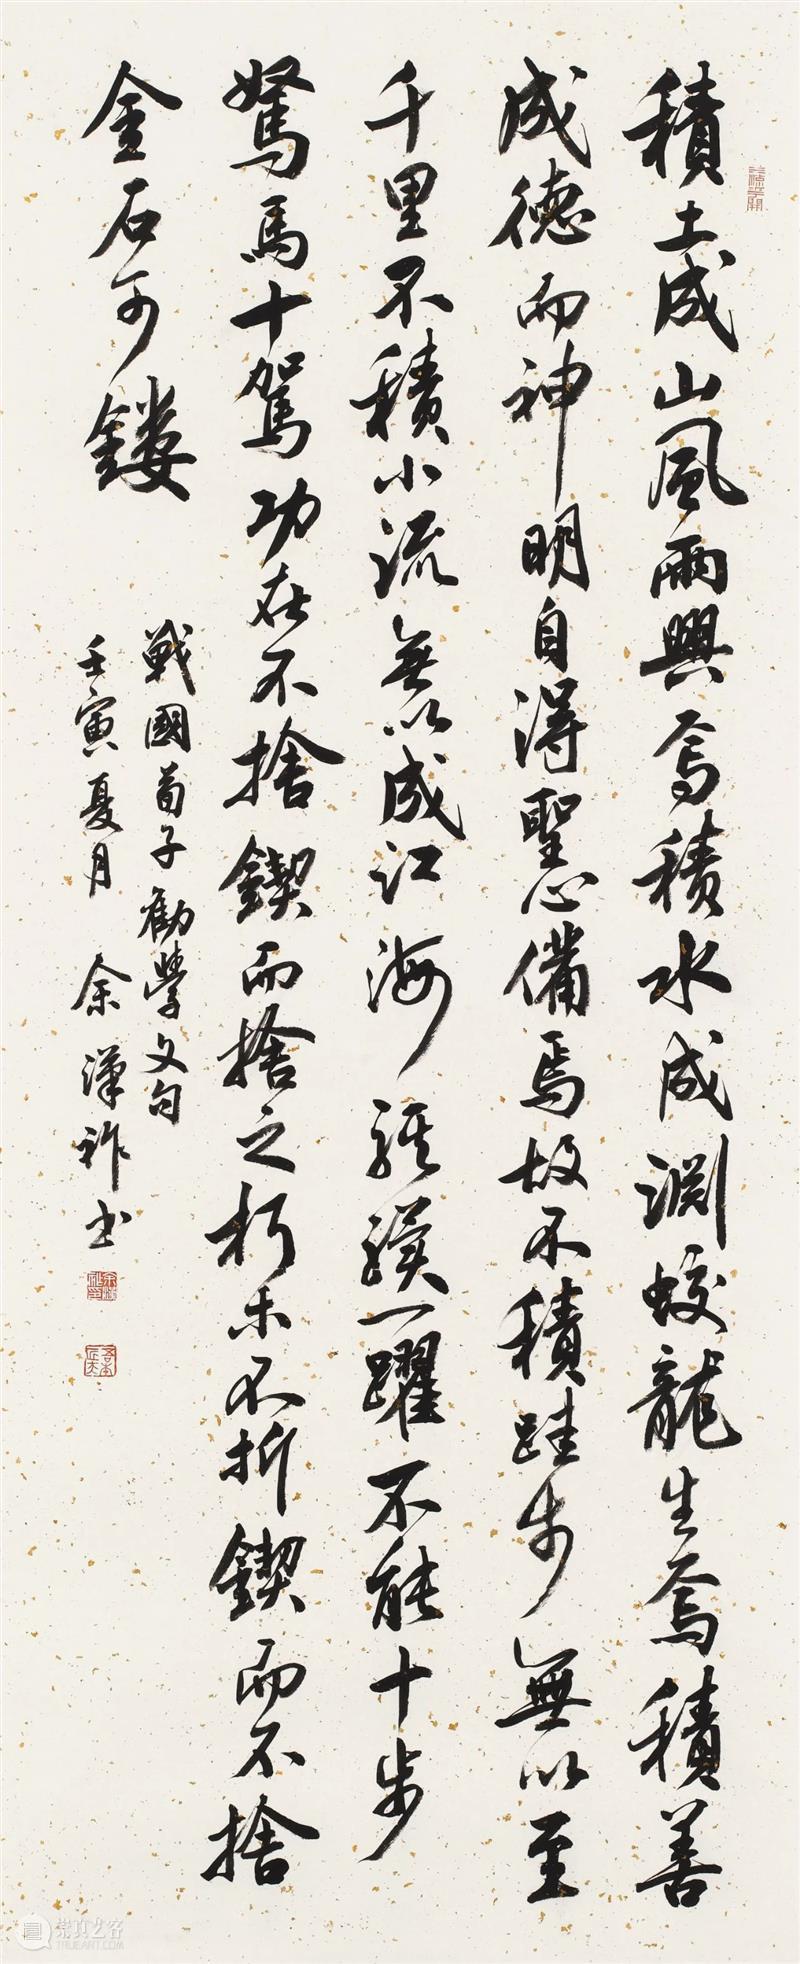 積土成山風雨興焉積水成淵蛟龍生焉積善
成德而神明自得聖心備焉故不積跬步無以至
千里不積小流無以成江海騏驥一躍不能十步
駑馬十駕功在不捨鍥而捨之朽木不折鍥而不捨
金石可鏤
戰國荀子勸學文句
壬寅夏月 余漢祚书
崇真艺客
TRUEART.COM